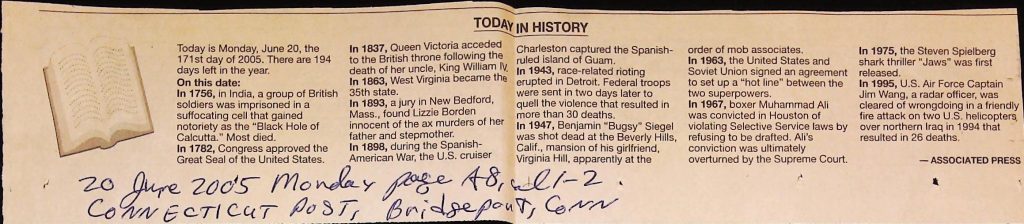 TODAY IN HISTORY
Today is Monday, June 20, the
171st day of 2005. There are 194
days left in the year.
On this date:
In 1756, in India, a group of British
soldiers was imprisoned in a
suffocating cell that gained
notoriety as the "Black Hole of
Calcutta." Most died.
In 1782, Congress approved the
Great Seal of the United States.
In 1837, Queen Victoria acceded
to the British throne following the
death of her uncle, King William IV.
In 1863, West Virginia became the
35th state.
In 1893, a jury in New Bedford,
Mass., found Lizzie Borden
innocent of the ax murders of her
father and stepmother.
In 1898, during the Spanish-
American War, the U.S. cruiser
Charleston captured the Spanish-
ruled island of Guam.
In 1943, race-related rioting
erupted in Detroit. Federal troops
were sent in two days later to
quell the violence that resulted in
more than 30 deaths.
In 1947, Benjamin "Bugsy" Siegel
was shot dead at the Beverly Hills,
Calif., mansion of his girlfriend,
Virginia Hill, apparently at the
order of mob associates.
In 1963, the United States and
Soviet Union signed an agreement
to set up a "hot line" between the
two superpowers.
In 1967, boxer Muhammad Ali
was convicted in Houston of
violating Selective Service laws by
refusing to be drafted. Ali's
conviction was ultimately
overturned by the Supreme Court.
In 1975, the Steven Spielberg
shark thriller "Jaws" was first
released.
In 1995, U.S. Air Force Captain
Jim Wang, a radar officer, was
cleared of wrongdoing in a friendly
fire attack on two U.S. helicopters
over northern Iraq in 1994 that
resulted in 26 deaths.
— ASSOCIATED PRESS
20 June 2005 Monday page A8, col 1-2.
CONNECTICUT POST, Bridgeport, CONN